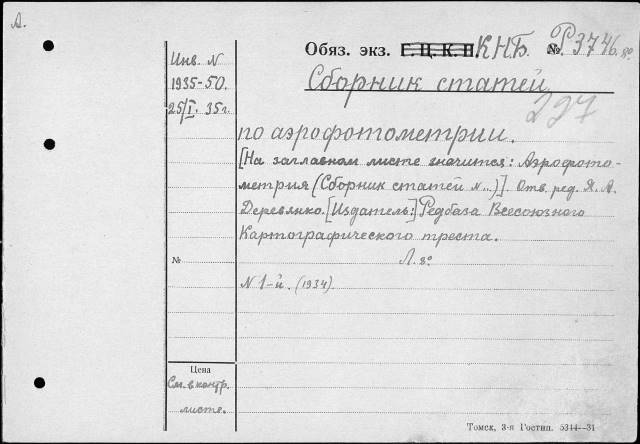 А.
Обяз. экз. Г. Ц. К. П. КНБ. №. Р 3746. 8°.
Инв. N
1935-50.
25/I. 35г.
Сборник статей
227
по аэрофотометрии.
[На заглавном листе значится: Аэрофото-
метрия (Сборник статей N...)]. Отв. ред. Я. А.
Деревянко. [Издатель:] Редбаза Всесоюзного
Картографического треста.
№
Л. 8°.
N 1-й. (1934).
Цена
См. в контр.
листе.
Томск, 3-я Гостип. 5344—31